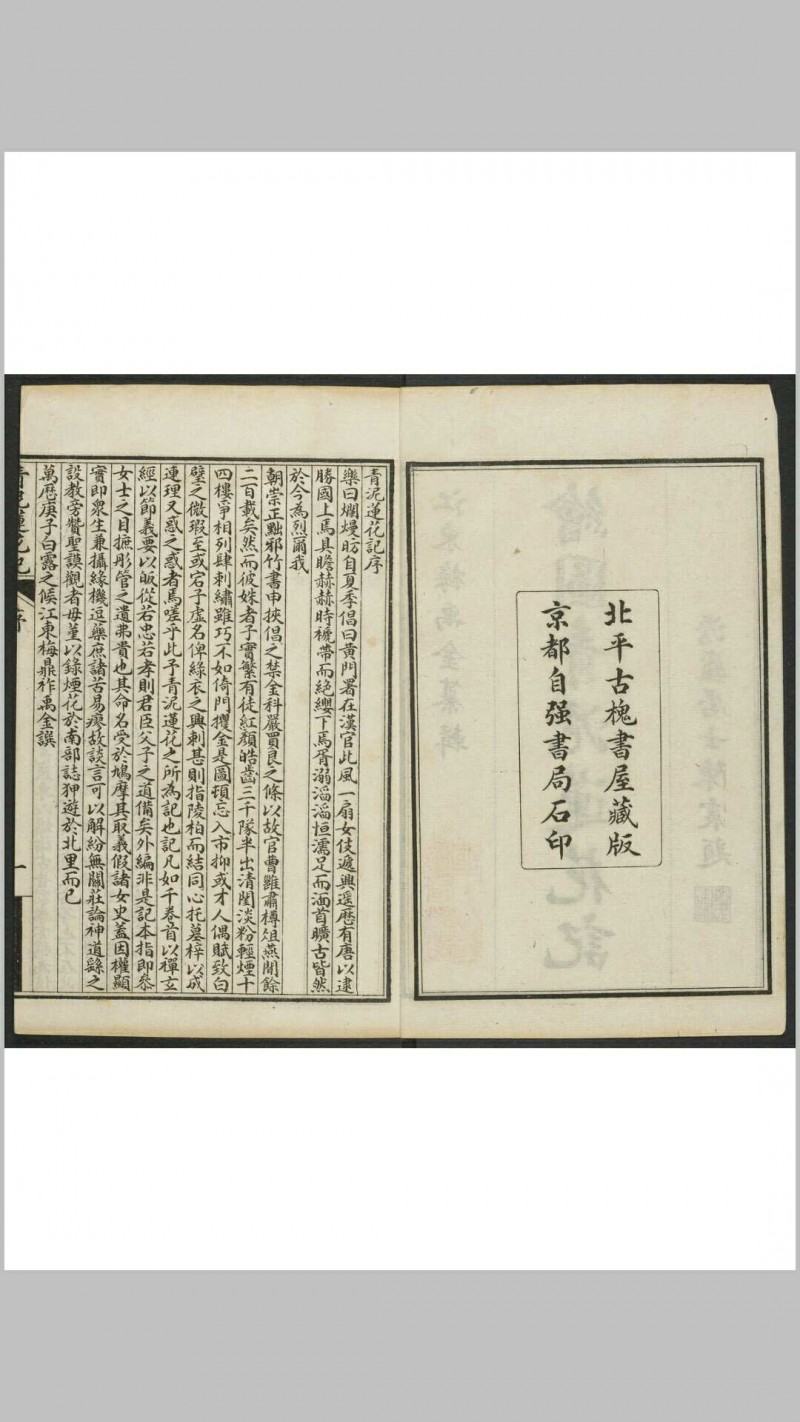 北平古槐書屋藏版
京都自强書局石印
青泥蓮花記序
樂曰爛熳昉自夏季倡曰黃門署在漢官此風一扇女伎遞興遥歷有唐以逮
勝國上焉具瞻赫赫時褫帶而絕纓下焉胥溺滔滔恒濡足而湎首曠古皆然
於今為烈爾我
朝崇正黜邪竹書申挾倡之禁金科嚴買良之條以故官曹雖肅樽俎燕閒餘
二百載矣然而彼姝者子實繁有徒紅顏皓齒三千隊半出清閨淡粉輕煙十
四樓爭相列肆刺繡雖巧不如倚門攫金是圖頊忘入市抑或才人偶賦致白
璧之微瑕至或宕子虛名俾綠衣之興刺甚則指陵柏而結同心托墓梓以成
連理又惑之惑者焉嗟乎此予青泥蓮花之所為記也記凡如千卷首以禪玄
經以節義要以皈從若忠若孝則君臣父子之道備矣外編非是記本指即叅
女士之目摭彤管之遺弗貴也其命名受於鳩摩其取義假諸女史蓋因權顯
實即衆生兼攝緣機逗藥庶諸苦易瘳故談言可以解紛無關莊論神道繇之
設教旁贊聖謨觀者毋堇以錄煙花於南部誌狎遊於北里而已
萬歷庚子白露之候江東梅鼎祚禹金譔
青泥蓮花記
序
一